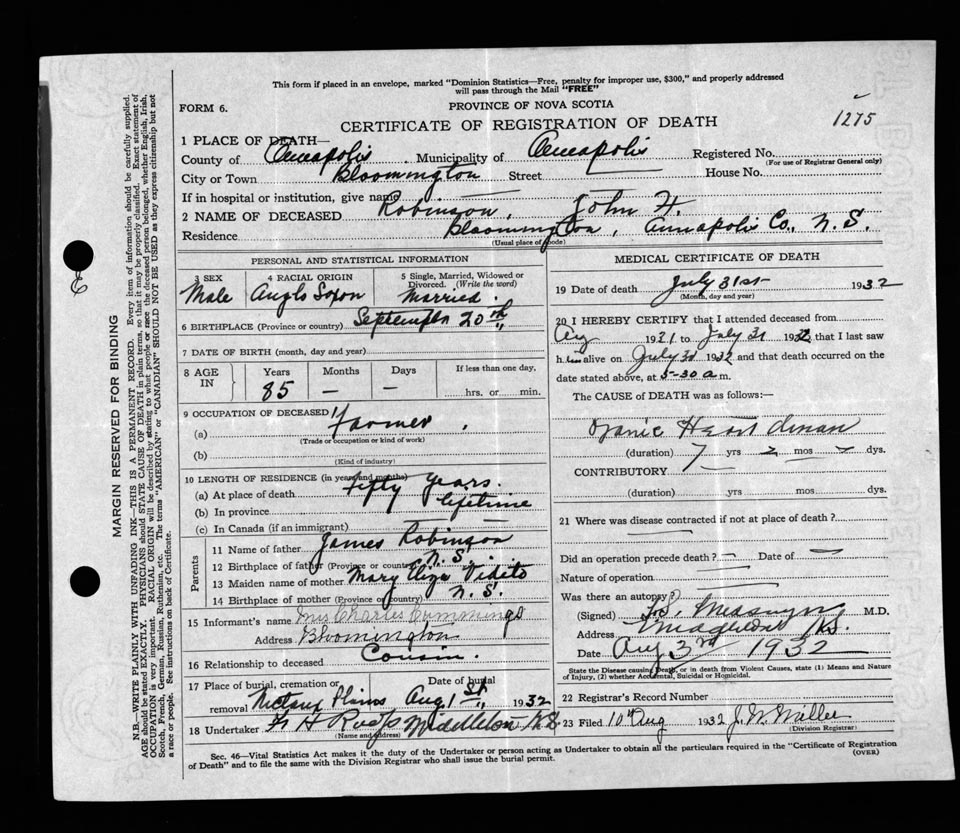 This form if placed in an envelope, marked "Dominion Statistics—Free, penalty for improper use, $300," and properly addressed
will pass through the Mail "FREE"
FORM 6.
PROVINCE OF NOVA SCOTIA
1275
CERTIFICATE OF REGISTRATION OF DEATH
1 PLACE OF DEATH—
County of Annapolis Municipality of Annapolis Registered No.
(For use of Registrar General only)
City or Town Bloomington Street House No.
If in hospital or institution, give name
2 NAME OF DECEASED Robinson, John H.
Residence Bloomington, Annapolis Co., N.S.
(Usual place of abode)
PERSONAL AND STATISTICAL INFORMATION
3 SEX 4 RACIAL ORIGIN 5 Single, Married, Widowed or
Divorced. (Write the word)
Male Anglo Saxon Married.
6 BIRTHPLACE (Province or country) September 20th
7 DATE OF BIRTH (month, day and year)
8 AGE IN Years Months Days If less than one day,
85 — — hrs. or min.
9 OCCUPATION OF DECEASED
(a) Farmer.
(Trade or occupation or kind of work)
(b)
(Kind of industry)
10 LENGTH OF RESIDENCE (in years and months)
(a) At place of death fifty years.
(b) In province lifetime
(c) In Canada (if an immigrant)
Parents
11 Name of father James Robinson
12 Birthplace of father (Province or country) N.S.
13 Maiden name of mother Mary Eliza Vidito
14 Birthplace of mother (Province or country) N.S.
15 Informant's name Mrs Charles
Address Bloomington
16 Relationship to deceased Cousin.
17 Place of burial, cremation or removal Date of burial
Plains Aug. 1st 1932
18 Undertaker Middleton N.S.
(Name and address)
MEDICAL CERTIFICATE OF DEATH
19 Date of death July 31st 1932
(Month, day and year)
20 I HEREBY CERTIFY that I attended deceased from
Aug 1921 to July 31 1932 that I last saw
h alive on July 30 1932 and that death occurred on the
date stated above, at 5-30 a m.
The CAUSE of DEATH was as follows:—
Heart
(duration) 7 yrs 2 mos dys.
CONTRIBUTORY
(duration) yrs mos dys.
21 Where was disease contracted if not at place of death?
Did an operation precede death? — Date of —
Nature of operation
Was there an autopsy?
(Signed) M.D.
Address N.S.
Date Aug 3rd 1932
State the Disease causing Death, or in death from Violent Causes, state (1) Means and Nature
of Injury, (2) whether Accidental, Suicidal or Homicidal.
22 Registrar's Record Number
23 Filed 10th Aug 1932 J. W. Miller
(Division Registrar)
Sec. 46—Vital Statistics Act makes it the duty of the Undertaker or person acting as Undertaker to obtain all the particulars required in the "Certificate of Registration
of Death" and to file the same with the Division Registrar who shall issue the burial permit.
(OVER)
MARGIN RESERVED FOR BINDING
N.B.—WRITE PLAINLY WITH UNFADING INK—THIS IS A PERMANENT RECORD. Every item of information should be carefully supplied.
AGE should be stated EXACTLY. PHYSICIANS should STATE CAUSE OF DEATH in plain terms, so that it may be properly classified. Exact statement of
OCCUPATION is very important. RACIAL ORIGIN will be described by stating to what people or race the deceased person belonged, whether English, Irish,
Scotch, French, German, Russian, Ruthenian, etc. The terms "AMERICAN" or "CANADIAN" SHOULD NOT BE USED as they express citizenship but not
a race or people. See instructions on back of Certificate.